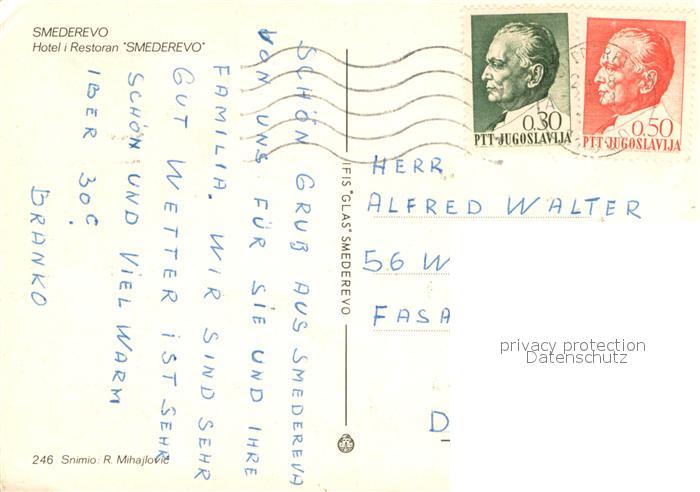 SMEDEREVO
Hotel i Restoran "SMEDEREVO"
SCHÖN GRUß AUS SMEDEREVA
VON UNS FÜR SIE UND IHRE
FAMILIA. WIR SIND SEHR
GUT WETTER IST SEHR
SCHÖN UND VIEL WARM
IBER 30C.
BRANKO
246 Snimio: R. Mihajlović
IFIS "GLAS" SMEDEREVO
0.30
PTT-JUGOSLAVIJA
0.50
PTT-JUGOSLAVIJA
HERR
ALFRED WALTER
56 W
FASA
D
privacy protection
Datenschutz